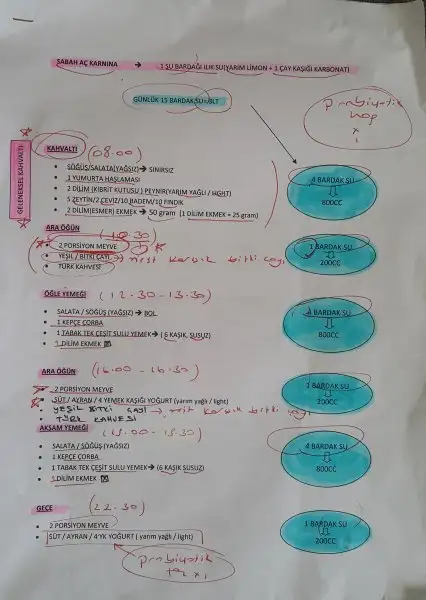 SABAH AÇ KARNINA → 1 SU BARDAĞI ILIK SU(YARIM LİMON + 1 ÇAY KAŞIĞI KARBONAT)
GÜNLÜK 15 BARDAK SU=3LT
Probiyotik
hap
x
1
GELENEKSEL KAHVALTI
KAHVALTI (08.00)
• SÖĞÜŞ/SALATA(YAĞSIZ)→ SINIRSIZ
• 1 YUMURTA HAŞLAMASI
• 2 DİLİM (KİBRİT KUTUSU) PEYNİR(YARIM YAĞLI / LIGHT)
• 5 ZEYTİN/2 CEVİZ/10 BADEM/10 FINDIK
• 2 DİLİM(ESMER) EKMEK → 50 gram (1 DİLİM EKMEK = 25 gram)
4 BARDAK SU
800CC
ARA ÖĞÜN (10.30)
• 2 PORSİYON MEYVE
• YEŞİL / BİTKİ ÇAYI → karışık bitki çayı
• TÜRK KAHVESİ
1 BARDAK SU
200CC
ÖĞLE YEMEĞİ (12.30-13.30)
• SALATA / SÖĞÜŞ (YAĞSIZ) → BOL
• 1 KEPÇE ÇORBA
• 1 TABAK TEK ÇEŞİT SULU YEMEK→ (6 KAŞIK, SUSUZ)
• 1 DİLİM EKMEK
BARDAK SU
800CC
ARA ÖĞÜN (16.00 - 16.30)
• 2 PORSİYON MEYVE
• SÜT / AYRAN / 4 YEMEK KAŞIĞI YOĞURT (yarım yağlı / light)
• YEŞİL BİTKİ ÇAYI → karışık bitki çayı
• TÜRK KAHVESİ
1 BARDAK SU
200CC
AKŞAM YEMEĞİ
• SALATA / SÖĞÜŞ (YAĞSIZ)
• 1 KEPÇE ÇORBA
• 1 TABAK TEK ÇEŞİT SULU YEMEK→ (6 KAŞIK SUSUZ)
• 1 DİLİM EKMEK
4 BARDAK SU
800CC
GECE (22.30)
• 2 PORSİYON MEYVE
• SÜT / AYRAN / 4 YK YOĞURT ( yarım yağlı / light)
1 BARDAK SU
200CC
probiyotik
x 1